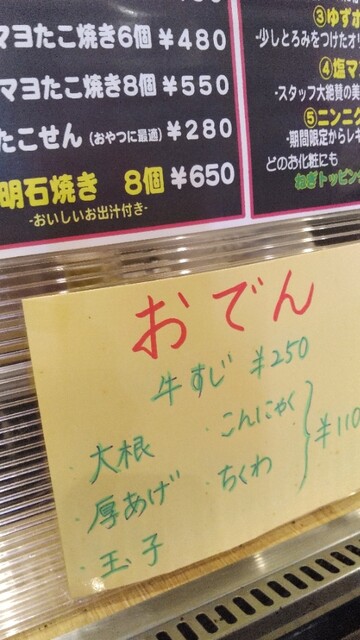 マヨたこ焼き6個 ¥480
マヨたこ焼き8個 ¥550
たこせん (おやつに最適) ¥280
明石焼き 8個 ¥650
-おいしいお出汁付き-
③ゆず
-少しとろみをつけたオリ
④塩マ
-スタッフ大絶賛の美
⑤ニンニク
-期間限定からレギ
どのお化粧にも
ねぎトッピング
おでん
牛すじ ¥250
・大根
・厚あげ
・玉子
・こんにゃく
・ちくわ
¥110